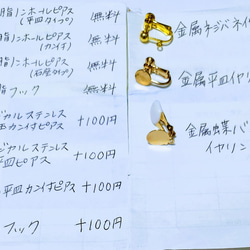 脂ノンホールピアス
(平皿タイプ) 無料
脂ノンホールピアス
(カン付) 無料
脂ノンホールピアス
(石座タイプ) 無料
脂フック 無料
ジカルステンレス
玉カン付ピアス +100円
ジカルステンレス
平皿ピアス +100円
平皿カン付ピアス +100円
フック +100円
金属ネジバネイヤ
金属平皿イヤリン
金属蝶バ
イヤリン